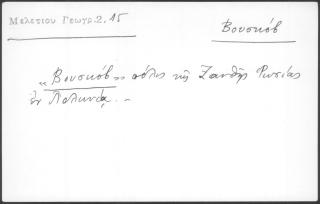 Μελετίου Γεωγρ. 2. 15
Βουσκόβ
"Βουσκόβ" πόλις τῆς Ξανθῆς Ρωσίας
ἐν Πολωνίᾳ. -